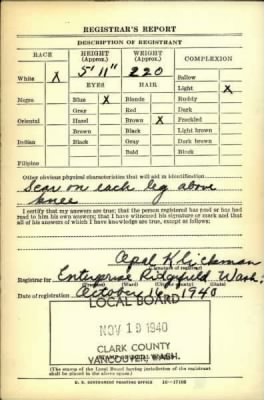 REGISTRAR'S REPORT
DESCRIPTION OF REGISTRANT
RACE HEIGHT (Approx.) WEIGHT (Approx.) COMPLEXION
5' 11" 220 Sallow
White X EYES HAIR Light X
Negro Blue X Blonde Ruddy
Gray Red Dark
Oriental Hazel Brown X Freckled
Brown Black Light brown
Indian Black Gray Dark brown
Bald Black
Filipino
Other obvious physical characteristics that will aid in identification
Scar on each leg above
knee
I certify that my answers are true; that the person registered has read or has had
read to him his own answers; that I have witnessed his signature or mark and that
all of his answers of which I have knowledge are true, except as follows:
Opal Klickman
(Signature of registrar)
Registrar for Enterprise Ridgefield Wash.
(Precinct) (Ward) (City or county) (State)
Date of registration October 16, 1940
LOCAL BOARD
NOV 19 1940
CLARK COUNTY
VANCOUVER, WASH.
(The stamp of the Local Board having jurisdiction of the registrant
shall be placed in the above space.)
U. S. GOVERNMENT PRINTING OFFICE 16-17105